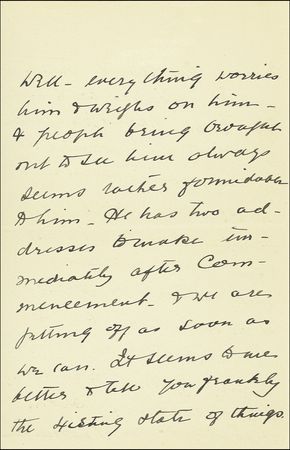 Well - everything worries
him & weighs on him -
& people being brought
out to see him always
seems rather formidable
to him - He has two ad-
dresses to make im-
mediately after Com-
mencement - & we are
getting off as soon as
we can. It seems to me
better to tell you frankly
the existing state of things.